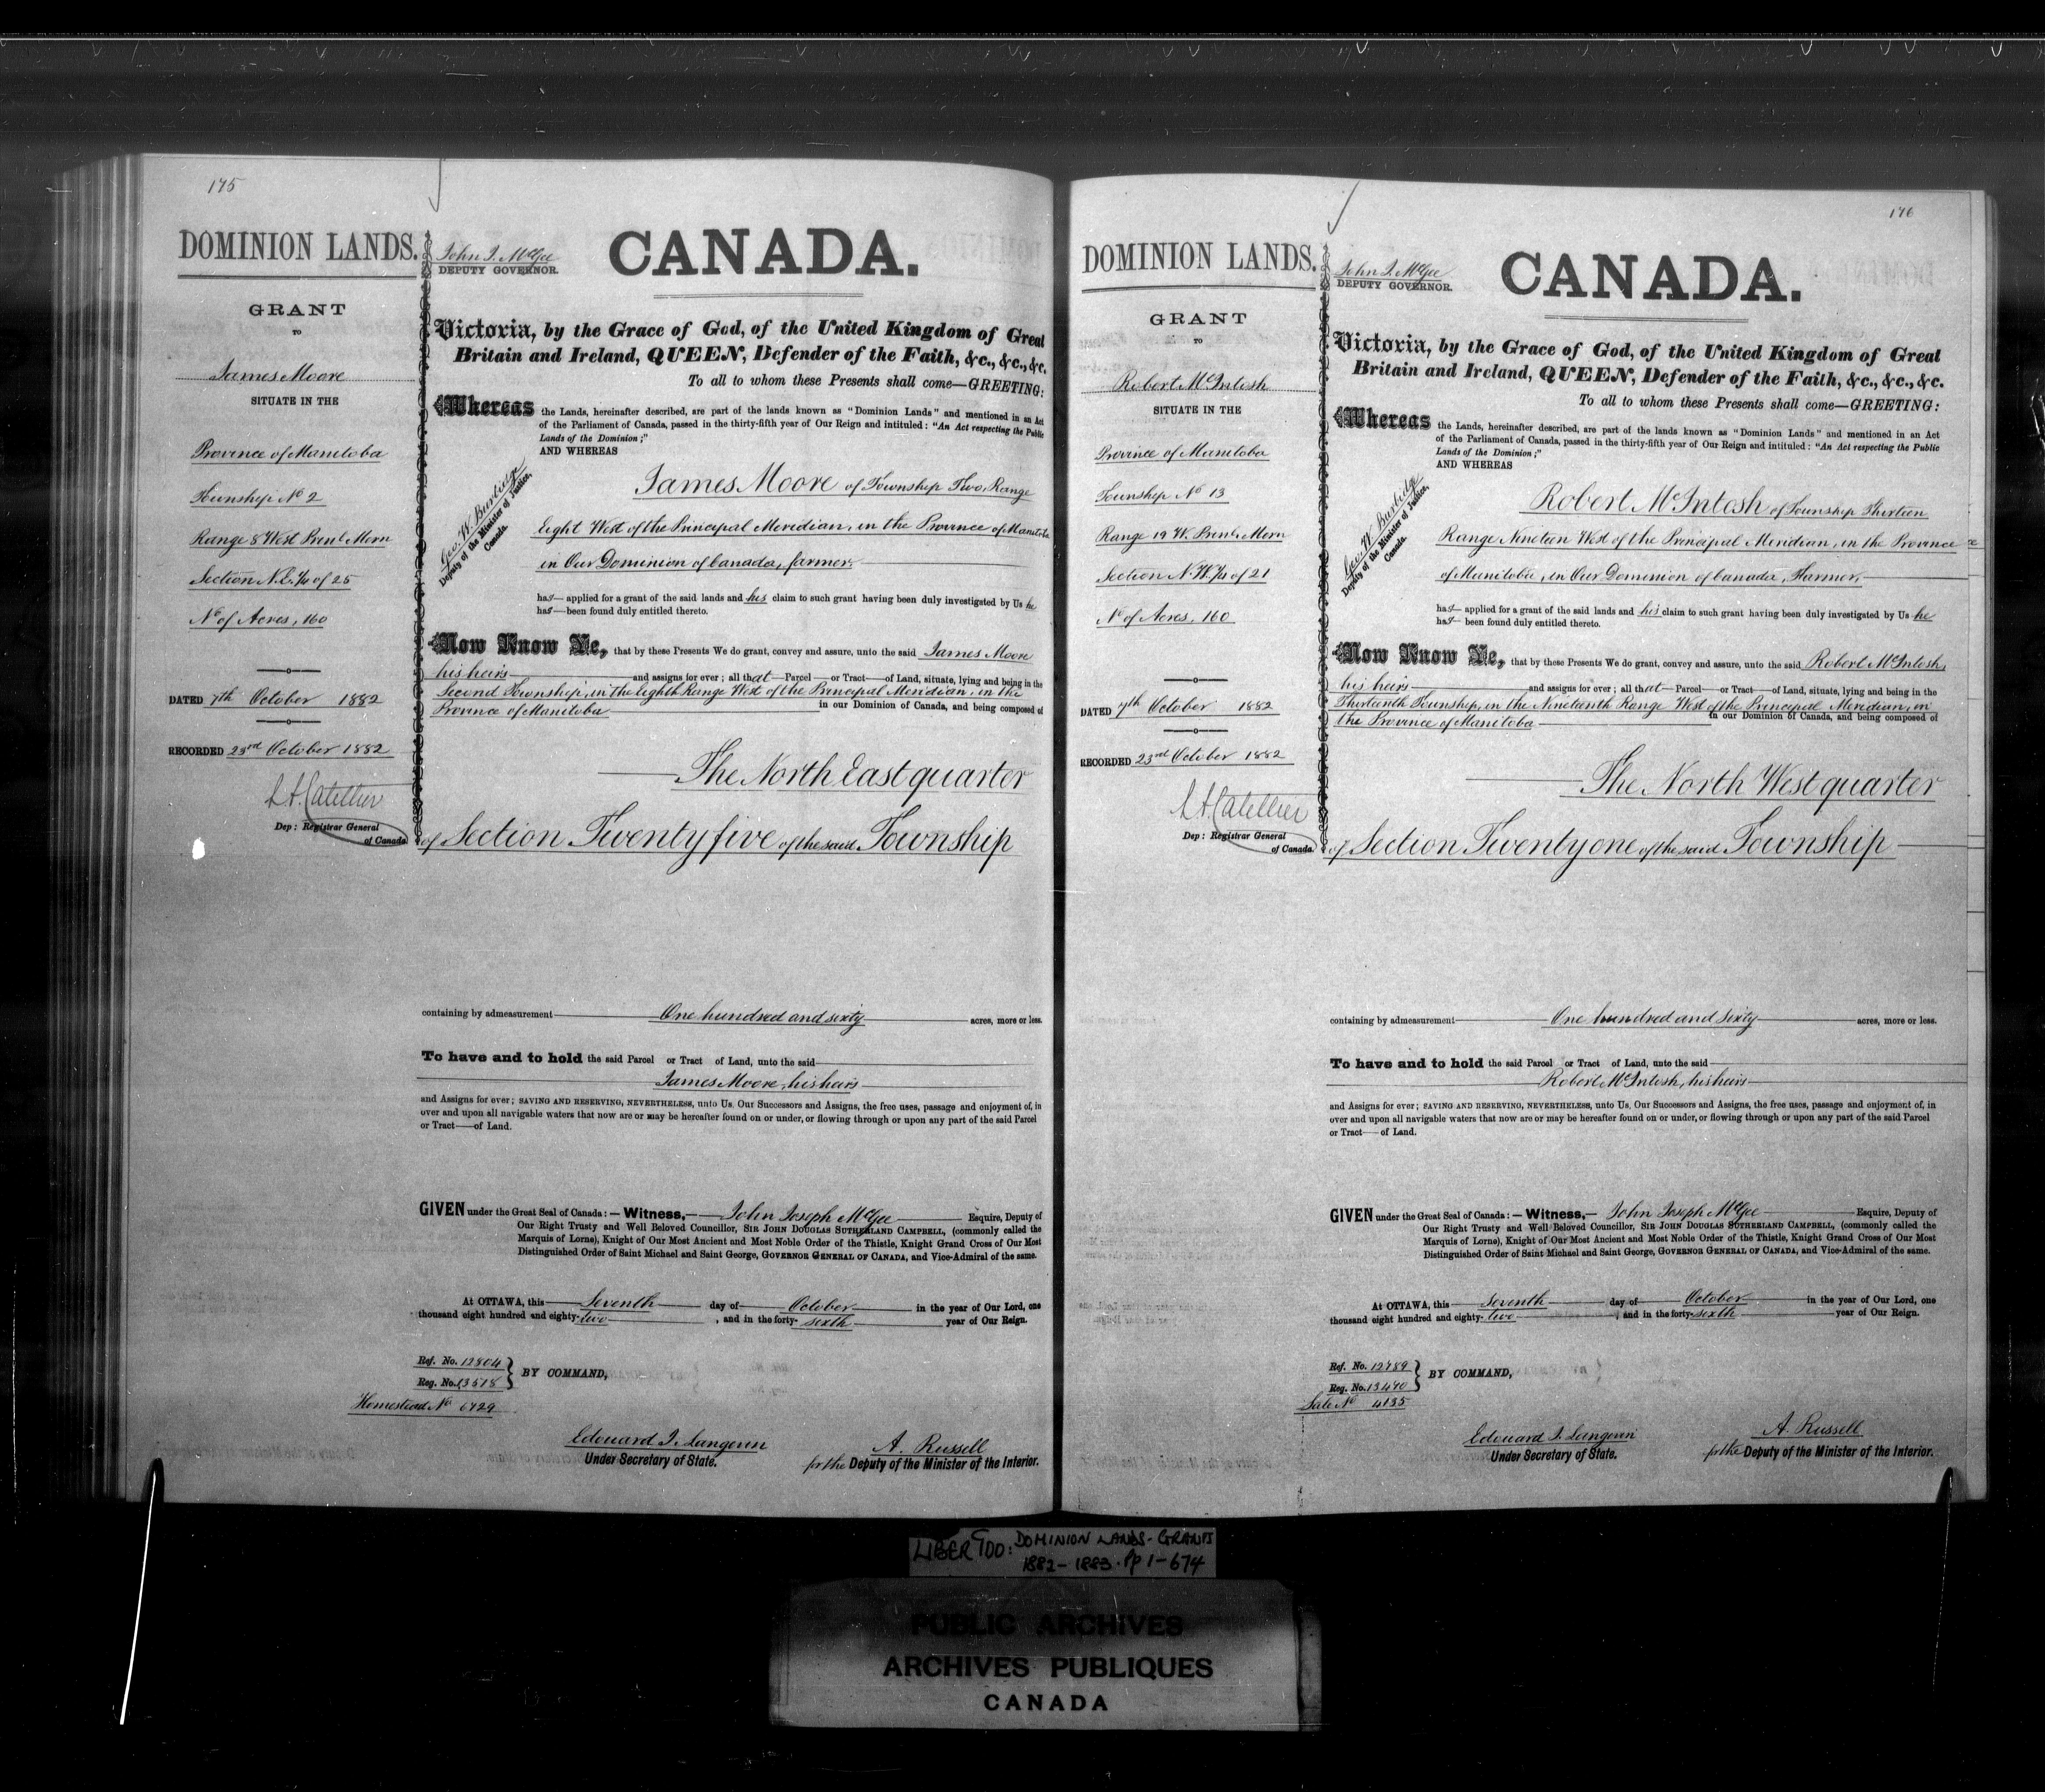 175
DOMINION LANDS.
GRANT
TO
James Moore
SITUATE IN THE
Province of Manitoba
Township No 2
Range 8 West Prinl Mern
Section N.E. 1/4 of 25
No of Acres, 160
DATED 7th October 1882
RECORDED 23rd October 1882
L. A. Catellier
Dep: Registrar General
of Canada.
John J. McGee
DEPUTY GOVERNOR.
CANADA.
Victoria, by the Grace of God, of the United Kingdom of Great
Britain and Ireland, QUEEN, Defender of the Faith, &c., &c., &c.
To all to whom these Presents shall come—GREETING:
Whereas the Lands, hereinafter described, are part of the lands known as "Dominion Lands" and mentioned in an Act
of the Parliament of Canada, passed in the thirty-fifth year of Our Reign and intituled: "An Act respecting the Public
Lands of the Dominion;"
AND WHEREAS
Geo. W. Burbidge
Deputy of the Minister of Justice,
Canada.
James Moore of Township Two, Range
Eight West of the Principal Meridian, in the Province of Manitoba
in Our Dominion of Canada, farmer.
has applied for a grant of the said lands and his claim to such grant having been duly investigated by Us he
has been found duly entitled thereto.
Now Know Ye, that by these Presents We do grant, convey and assure, unto the said James Moore
his heirs and assigns for ever; all that Parcel or Tract of Land, situate, lying and being in the
Second Township, in the Eighth Range West of the Principal Meridian, in the
Province of Manitoba in our Dominion of Canada, and being composed of
The North East quarter
of Section Twenty five of the said Township
containing by admeasurement One hundred and sixty acres, more or less.
To have and to hold the said Parcel or Tract of Land, unto the said
James Moore, his heirs
and Assigns for ever; SAVING AND RESERVING, NEVERTHELESS, unto Us, Our Successors and Assigns, the free uses, passage and enjoyment of, in
over and upon all navigable waters that now are or may be hereafter found on or under, or flowing through or upon any part of the said Parcel
or Tract of Land.
GIVEN under the Great Seal of Canada:—Witness, John Joseph McGee Esquire, Deputy of
Our Right Trusty and Well Beloved Councillor, SIR JOHN DOUGLAS SUTHERLAND CAMPBELL, (commonly called the
Marquis of Lorne), Knight of Our Most Ancient and Most Noble Order of the Thistle, Knight Grand Cross of Our Most
Distinguished Order of Saint Michael and Saint George, GOVERNOR GENERAL OF CANADA, and Vice-Admiral of the same.
At OTTAWA, this Seventh day of October in the year of Our Lord, one
thousand eight hundred and eighty-two, and in the forty-sixth year of Our Reign.
Ref. No. 12804
Reg. No. 13518
BY COMMAND,
Homestead No 6729
Edouard J. Langevin
Under Secretary of State.
A. Russell
for the Deputy of the Minister of the Interior.
176
DOMINION LANDS.
GRANT
TO
Robert McIntosh
SITUATE IN THE
Province of Manitoba
Township No 13
Range 19 W. Prinl. Mern
Section N.W. 1/4 of 21
No of Acres, 160
DATED 7th October 1882
RECORDED 23rd October 1882
L. A. Catellier
Dep: Registrar General
of Canada.
John J. McGee
DEPUTY GOVERNOR.
CANADA.
Victoria, by the Grace of God, of the United Kingdom of Great
Britain and Ireland, QUEEN, Defender of the Faith, &c., &c., &c.
To all to whom these Presents shall come—GREETING:
Whereas the Lands, hereinafter described, are part of the lands known as "Dominion Lands" and mentioned in an Act
of the Parliament of Canada, passed in the thirty-fifth year of Our Reign and intituled: "An Act respecting the Public
Lands of the Dominion;"
AND WHEREAS
Geo. W. Burbidge
Deputy of the Minister of Justice,
Canada.
Robert McIntosh of Township Thirteen
Range Nineteen West of the Principal Meridian, in the Province
of Manitoba, in Our Dominion of Canada, Farmer,
has applied for a grant of the said lands and his claim to such grant having been duly investigated by Us he
has been found duly entitled thereto.
Now Know Ye, that by these Presents We do grant, convey and assure, unto the said Robert McIntosh,
his heirs and assigns for ever; all that Parcel or Tract of Land, situate, lying and being in the
Thirteenth Township, in the Nineteenth Range West of the Principal Meridian, in
the Province of Manitoba in our Dominion of Canada, and being composed of
The North West quarter
of Section Twenty one of the said Township
containing by admeasurement One hundred and sixty acres, more or less.
To have and to hold the said Parcel or Tract of Land, unto the said
Robert McIntosh, his heirs
and Assigns for ever; SAVING AND RESERVING, NEVERTHELESS, unto Us, Our Successors and Assigns, the free uses, passage and enjoyment of, in
over and upon all navigable waters that now are or may be hereafter found on or under, or flowing through or upon any part of the said Parcel
or Tract of Land.
GIVEN under the Great Seal of Canada:—Witness,—John Joseph McGee Esquire, Deputy of
Our Right Trusty and Well Beloved Councillor, SIR JOHN DOUGLAS SUTHERLAND CAMPBELL, (commonly called the
Marquis of Lorne), Knight of Our Most Ancient and Most Noble Order of the Thistle, Knight Grand Cross of Our Most
Distinguished Order of Saint Michael and Saint George, GOVERNOR GENERAL OF CANADA, and Vice-Admiral of the same.
At OTTAWA, this Seventh day of October in the year of Our Lord, one
thousand eight hundred and eighty-two, and in the forty-sixth year of Our Reign.
Ref. No. 12789
Reg. No. 13470
BY COMMAND,
Sale No 4135
Edouard J. Langevin
Under Secretary of State.
A. Russell
for the Deputy of the Minister of the Interior.
LIBER 900: DOMINION LANDS - GRANTS
1882-1883. Pp 1-674
PUBLIC ARCHIVES
ARCHIVES PUBLIQUES
CANADA